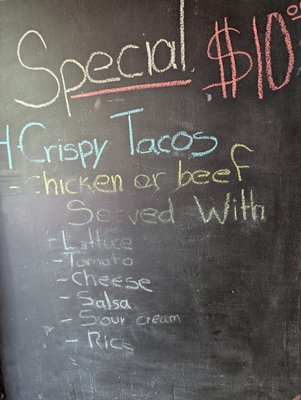 Special $10°
4 Crispy Tacos
- chicken or beef
Served With
- Lettuce
- Tomato
- Cheese
- Salsa
- Sour cream
- Rice